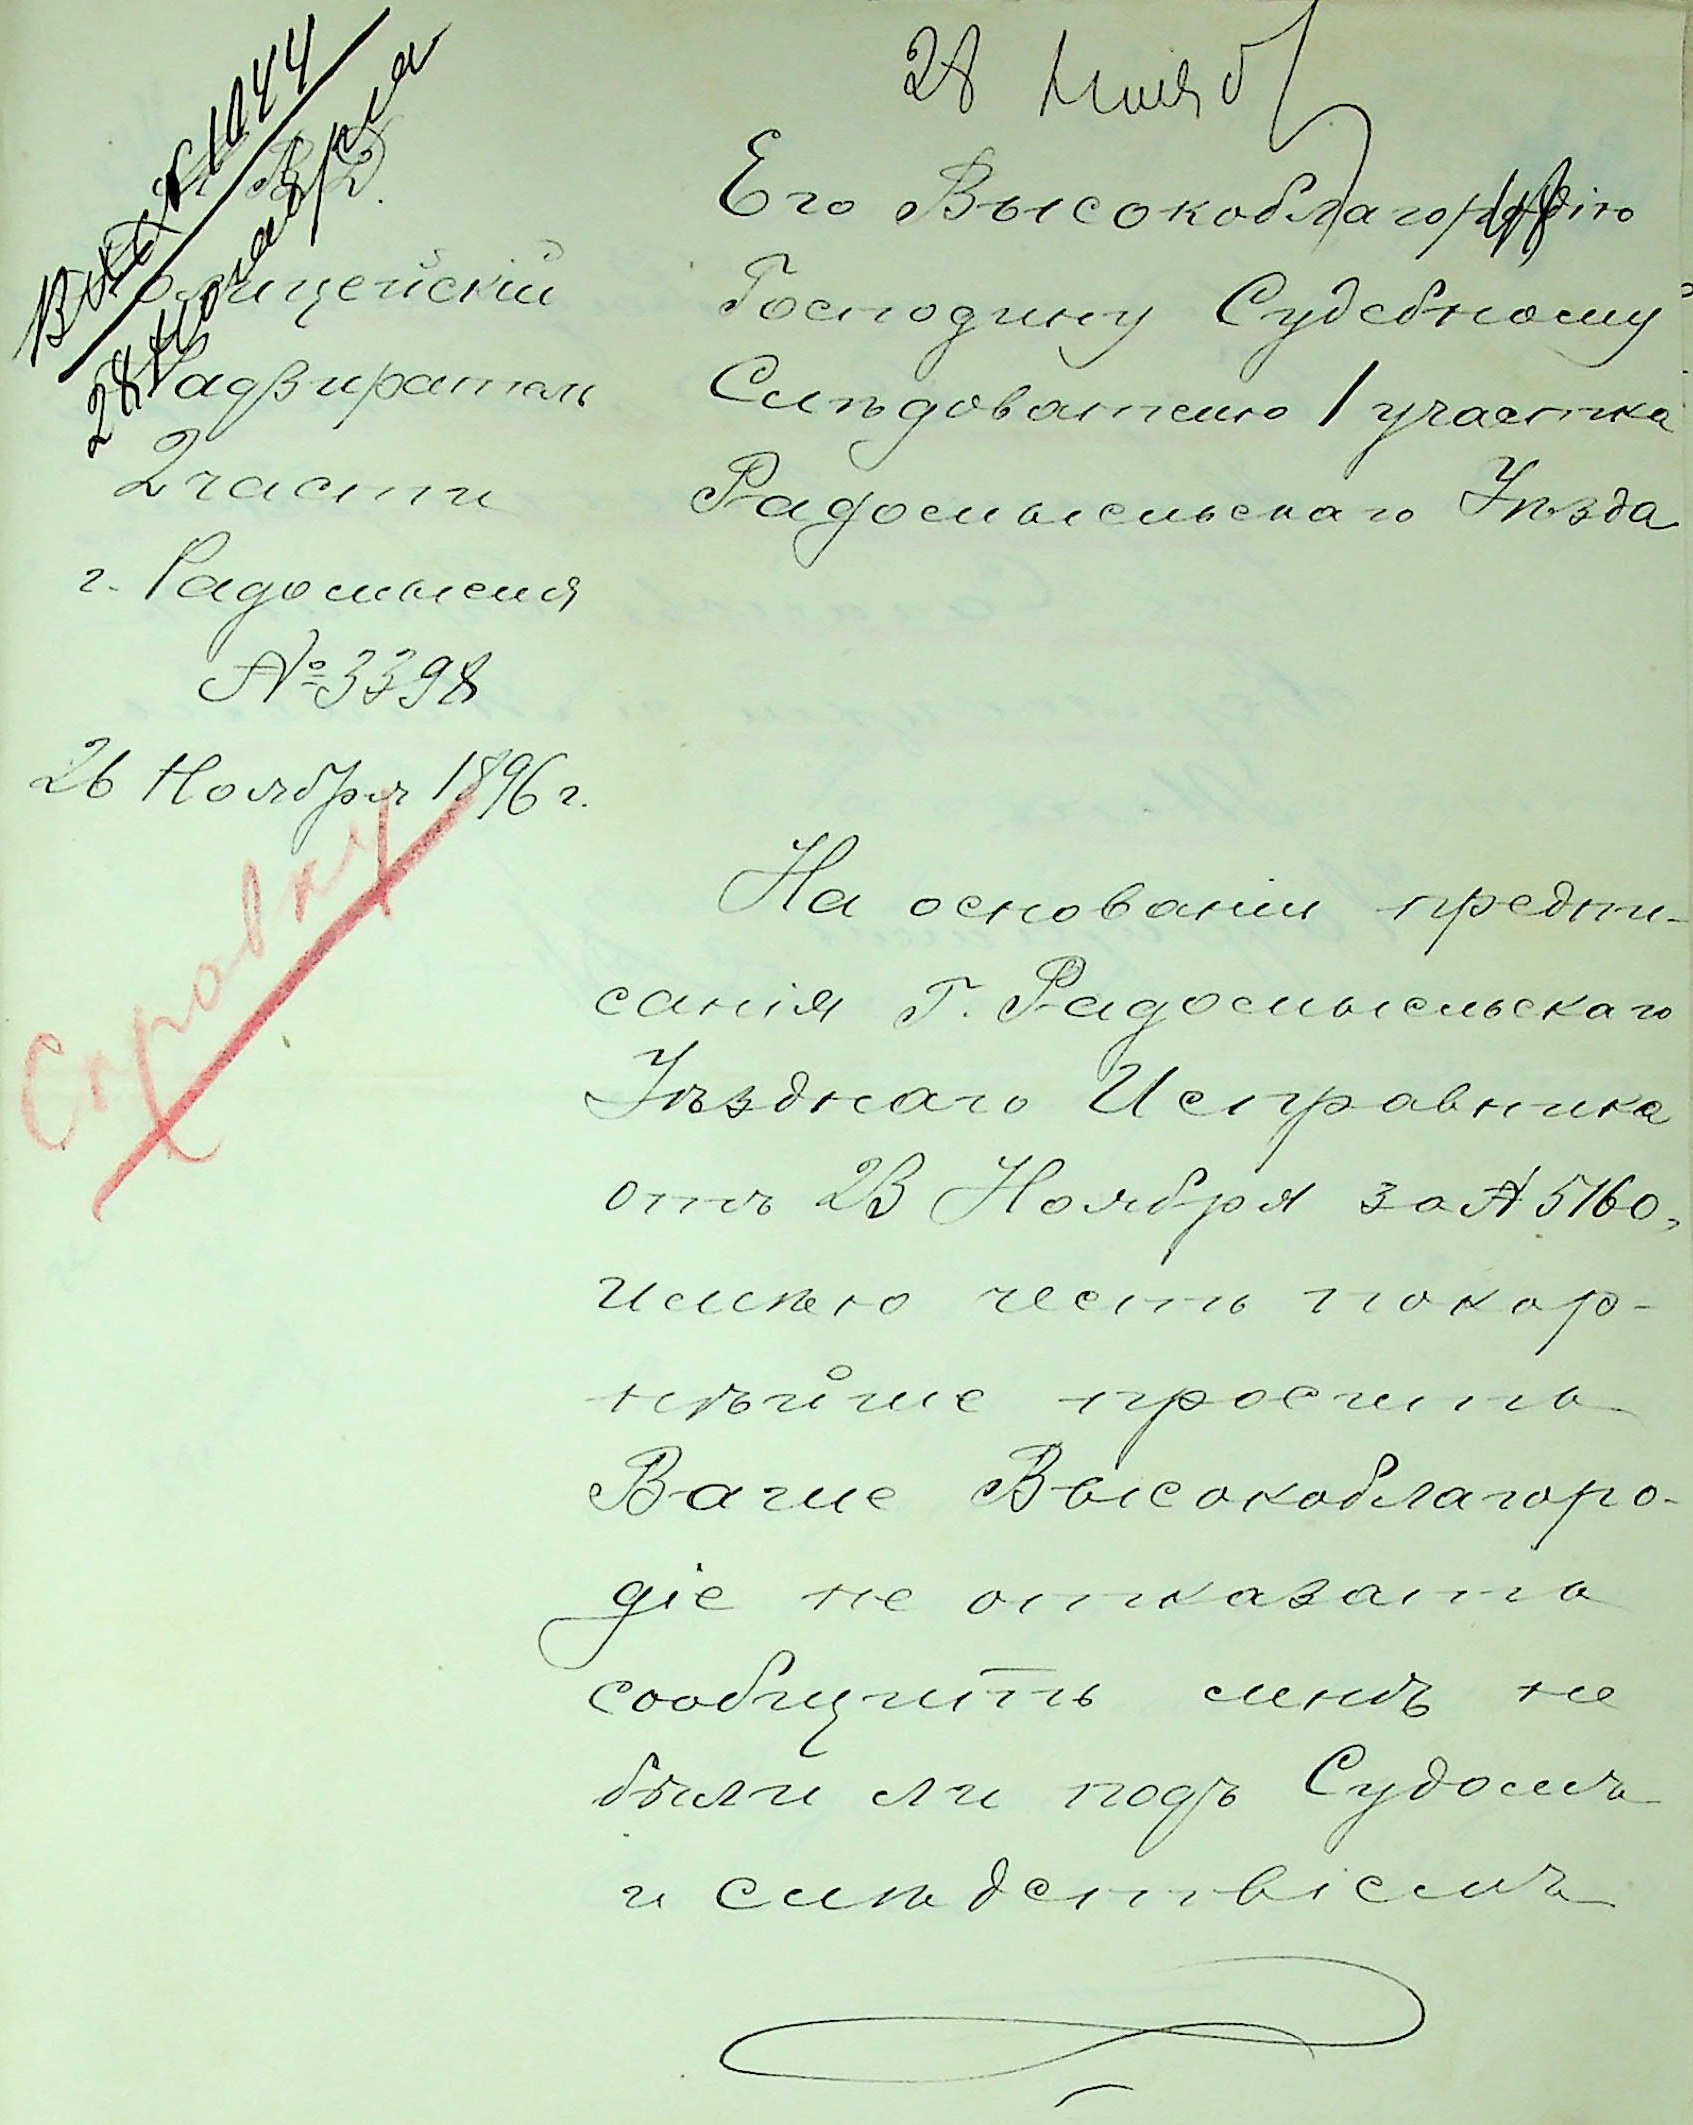 28 Нояб
Вх. № 1044
28 Ноября
М. В. Д.
Полицейскій
Надзиратель
2 части
г. Радомысля
№ 3398
26 Ноября 1896 г.
Справку
Его Высокоблагородію
Господину Судебному
Слѣдователю 1 участка
Радомысльскаго Уѣзда
На основаніи предпи-
санія Г. Радомысльскаго
Уѣзднаго Исправника
отъ 23 Ноября за № 5160,
имѣю честь покор-
нѣйше просить
Ваше Высокоблагоро-
діе не отказать
сообщить мнѣ не
были ли подъ Судомъ
и слѣдствіемъ